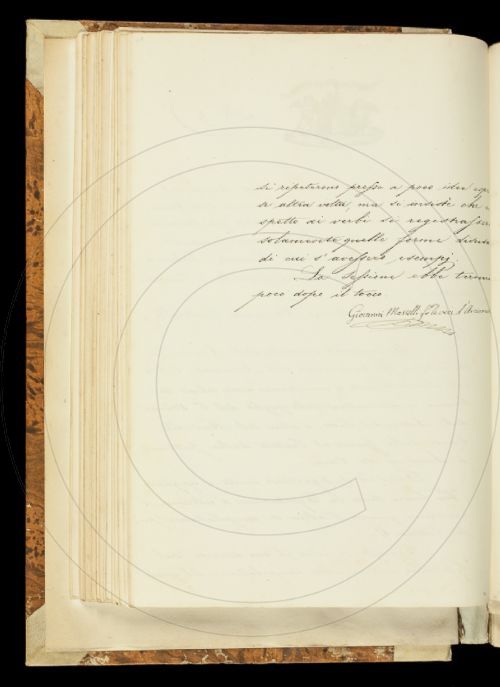 si repeterono presso a poco idee espre
se altra volta, ma si insistè che
spetto di verbi si registrassero
solamente quelle forme
di cui s'avessero esempj.
La sessione ebbe termine
poco dopo il tocco.
Giovanni